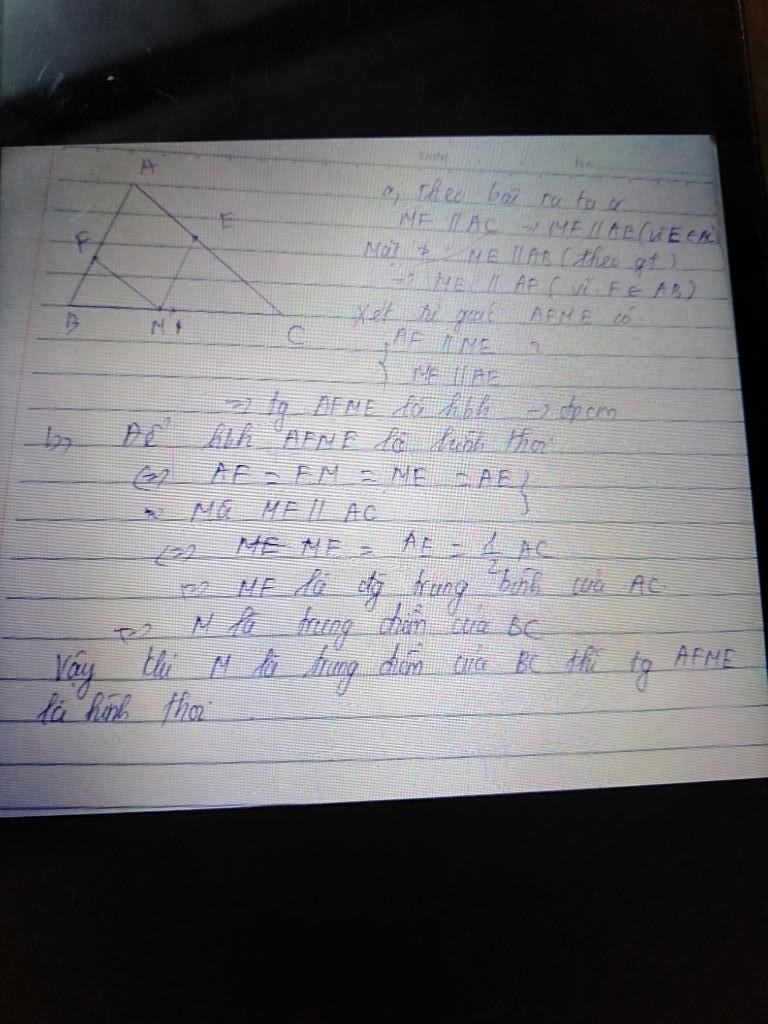 Date No
A
E
F
B
M
C
a, theo bài ra ta có
MF // AC → MF // AE (vì E ∈ AC)
Mặt ≠: ME // AB (theo gt)
→ ME // AF (vì F ∈ AB)
Xét tứ giác AFME có
{ AF // ME
{ MF // AE
=> tg AFME là hbh → đpcm
b, Để hbh AFME là hình thoi
<=> AF = FM = ME = AE }
MF // AC
<=> MF = AE = 1/2 AC
=> MF là đg trung bình của AC
=> M là trung điểm của BC
Vậy khi M là trung điểm của BC thì tg AFME
là hình thoi